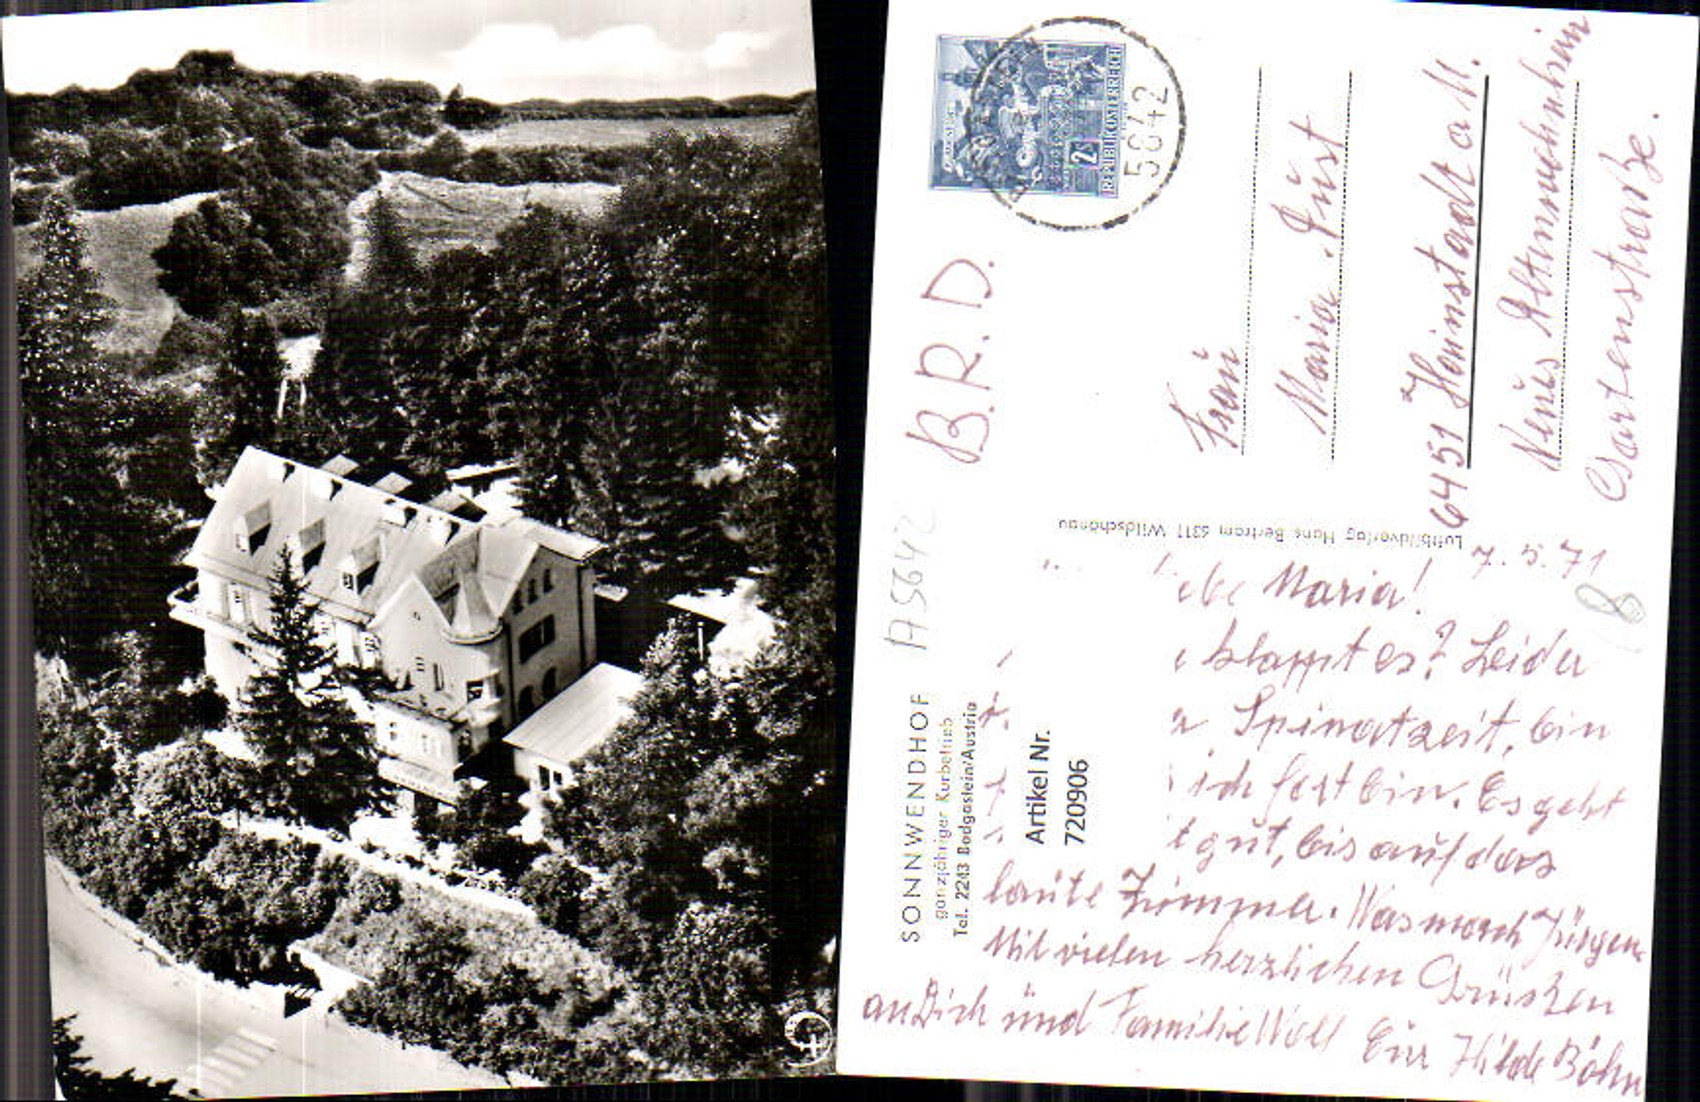 2s
REPUBLIK OSTERREICH
5642
B.R.D.
Frau
Maria
6451 Hainstadt a M.
Neues
Gartenstraße.
Luftbildverlag Hans Bertram 6311 Wildschönau
A5642
SONNWENDHOF
ganzjähriger Kurbetrieb
Tel. 2243 Badgastein/Austria
Artikel Nr.
720906
7. 5. 71
8
Maria!
klappt es? Leider
Spinatzeit, bin
ich fort bin. Es geht
gut, bis auf das
laute Zimmer. Was macht Jürgen.
Mit vielen herzlichen Grüssen
an Dich und Familie
Hilde Böhn